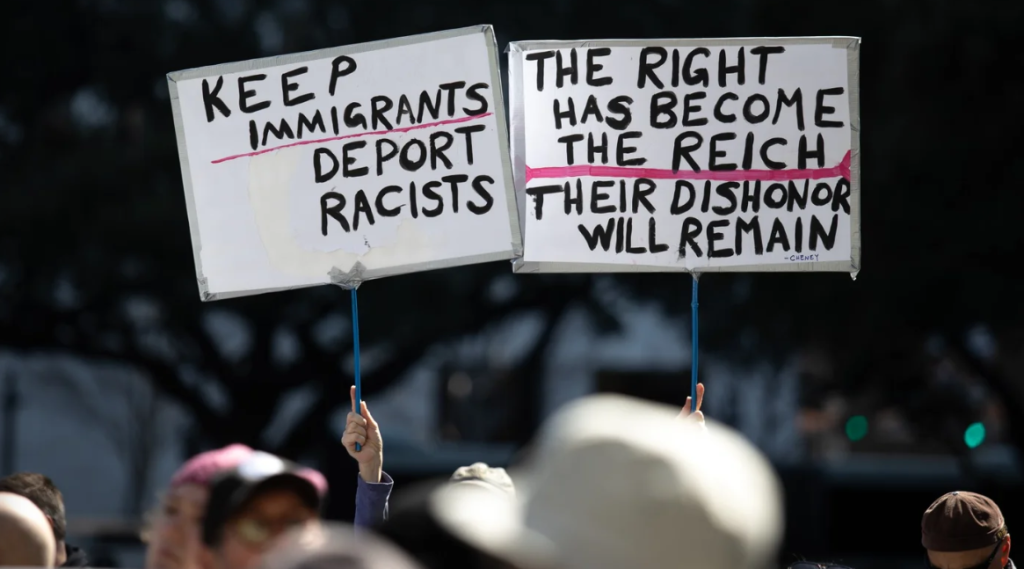 KEEP
IMMIGRANTS
DEPORT
RACISTS
THE RIGHT
HAS BECOME
THE REICH
THEIR DISHONOR
WILL REMAIN
-CHENEY